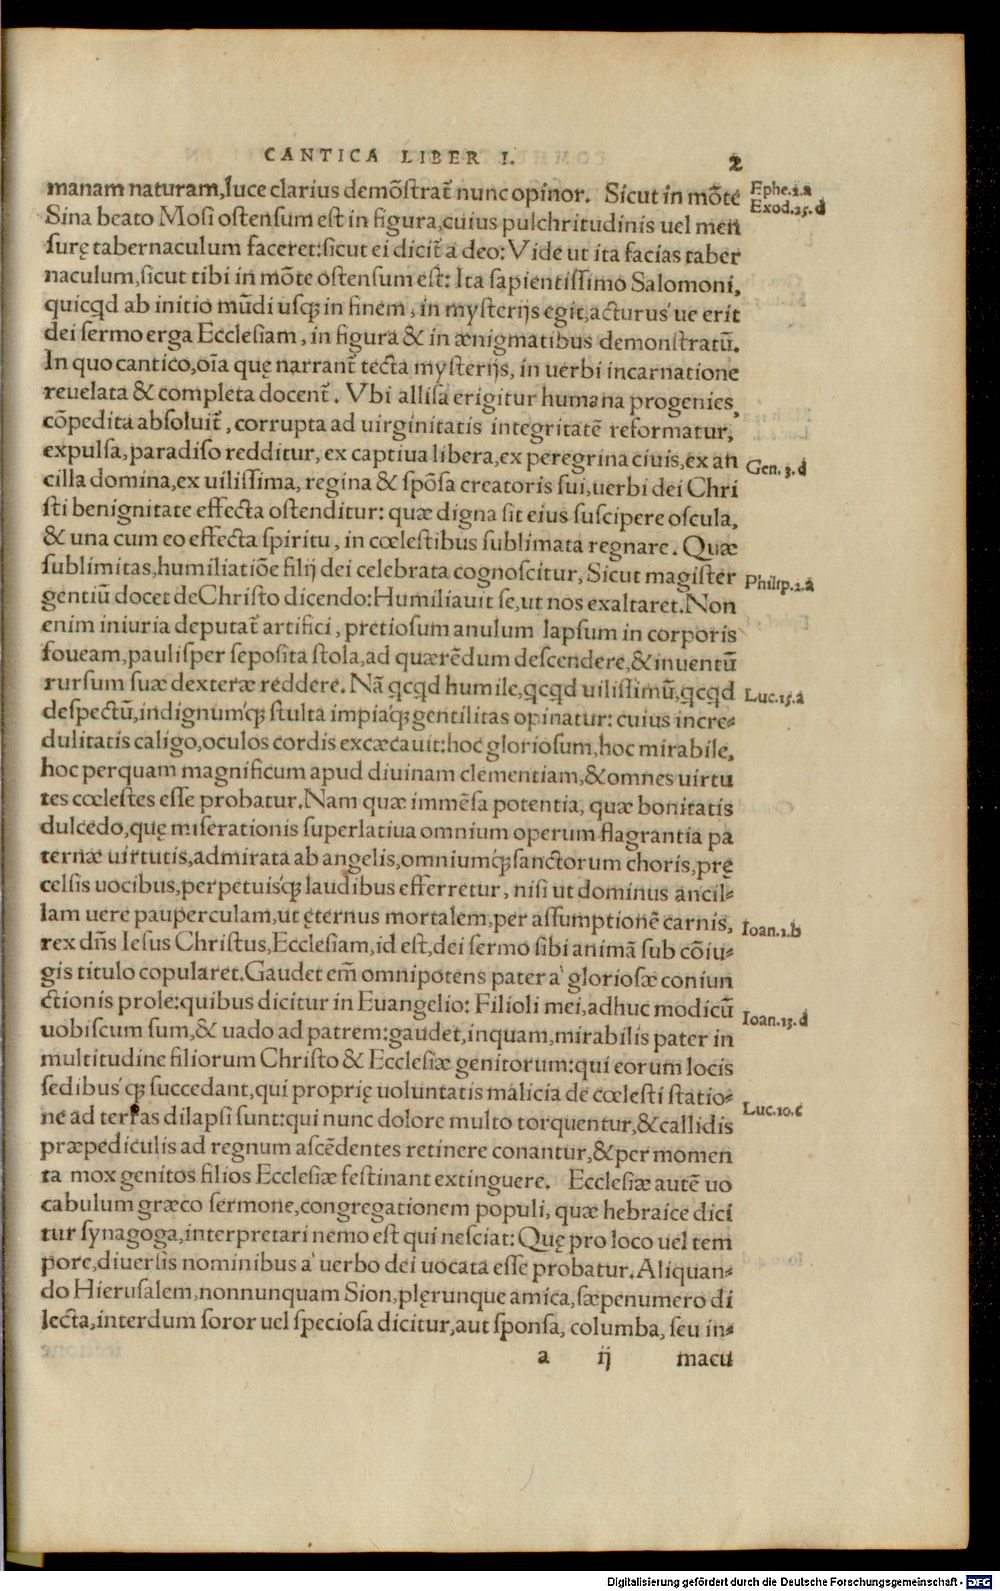 CANTICA LIBER I. 2
manam naturam, luce clarius demōſtrat᷑ nunc opinor. Sicut in mōte Ephe.1.a
Sina beato Moſi oſtenſum eſt in figura, cuius pulchritudinis uel men Exod.25.d
ſurę tabernaculum faceret: ſicut ei dicit᷑ a deo: Vide ut ita facias taber
naculum, ſicut tibi in mōte oſtenſum eſt: Ita ſapientiſſimo Salomoni,
quicꝗd ab initio mūdi uſqꝫ in finem, in myſterijs egit, acturus ́ue erit
dei ſermo erga Eccleſiam, in figura & in ænigmatibus demonſtratū.
In quo cantico, oīa quę narrant᷑ tecta myſterijs, in uerbi incarnatione
reuelata & completa docent᷑. Vbi alliſa erigitur humana progenies,
cōpedita abſoluit᷑, corrupta ad uirginitatis integritatē reformatur,
expulſa, paradiſo redditur, ex captiua libera, ex peregrina ciuis, ex an Gen.3.d
cilla domina, ex uiliſſima, regina & ſpōſa creatoris ſui, uerbi dei Chri
ſti benignitate effecta oſtenditur: quæ digna ſit eius ſuſcipere oſcula,
& una cum eo effecta ſpiritu, in cœleſtibus ſublimata regnare. Quæ
ſublimitas, humiliatiōe filij dei celebrata cognoſcitur, Sicut magiſter Philip.2.a
gentiū docet de Chriſto dicendo: Humiliauit ſe, ut nos exaltaret. Non
enim iniuria deputat᷑ artifici, pretioſum anulum lapſum in corporis
foueam, pauliſper ſepoſita ſtola, ad quærēdum deſcendere, & inuentū
rurſum ſuæ dexteræ reddere. Nā ꝗcꝗd humile, ꝗcꝗd uiliſſimū, ꝗcꝗd Luc.15.a
deſpectū, indignum ́qꝫ ſtulta impia ́qꝫ gentilitas opinatur: cuius incre⸗
dulitatis caligo, oculos cordis excæcauit: hoc glorioſum, hoc mirabile,
hoc perquam magnificum apud diuinam clementiam, & omnes uirtu
tes cœleſtes eſſe probatur. Nam quæ immēſa potentia, quæ bonitatis
dulcedo, quę miſerationis ſuperlatiua omnium operum flagrantia pa
ternæ uirtutis, admirata ab angelis, omnium ́qꝫ ſanctorum choris, prę
celſis uocibus, perpetuis ́qꝫ laudibus efferretur, niſi ut dominus ancil⸗
lam uere pauperculam, ut ęternus mortalem, per aſſumptionē carnis, Ioan.1.b
rex dn̄s Ieſus Chriſtus, Eccleſiam, id eſt, dei ſermo ſibi animā ſub cōiu⸗
gis titulo copularet. Gaudet em̄ omnipotens pater à glorioſæ coniun
ctionis prole: quibus dicitur in Euangelio: Filioli mei, adhuc modicū
uobiſcum ſum, & uado ad patrem: gaudet, inquam, mirabilis pater in Ioan.13.d
multitudine filiorum Chriſto & Eccleſiæ genitorum: qui eorum locis
ſedibus ́qꝫ ſuccedant, qui proprię uoluntatis malicia de cœleſti ſtatio⸗
ne ad terras dilapſi ſunt: qui nunc dolore multo torquentur, & callidis Luc.10.c
præpediculis ad regnum aſcēdentes retinere conantur, & per momen
ta mox genitos filios Eccleſiæ feſtinant extinguere. Eccleſiæ autē uo
cabulum græco ſermone, congregationem populi, quæ hebraice dici
tur ſynagoga, interpretari nemo eſt qui neſciat: Quę pro loco uel tem
pore, diuerſis nominibus à uerbo dei uocata eſſe probatur. Aliquan⸗
do Hieruſalem, nonnunquam Sion, plęrunque amica, ſæpenumero di
lecta, interdum ſoror uel ſpecioſa dicitur, aut ſponſa, columba, ſeu in⸗
a ij macu
Digitalisierung gefördert durch die Deutsche Forschungsgemeinschaft - DFG